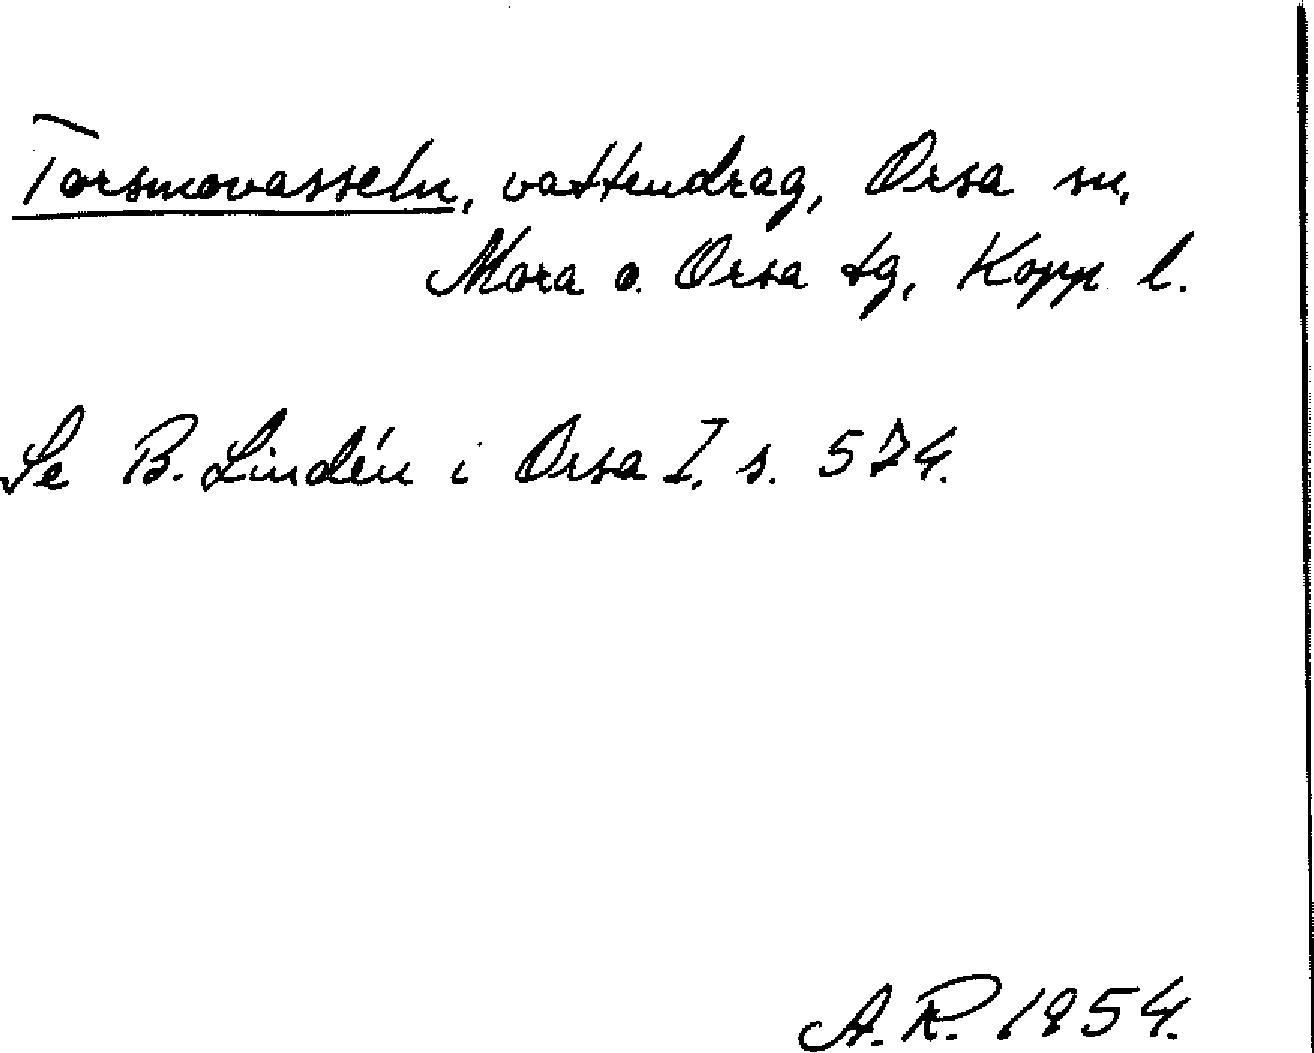 Torsmovasseln, vattendrag, Orsa sn,
Mora o. Orsa tg, Kopp l.
Se B. Lindén i Orsa I, s. 574.
A.R. 1954.